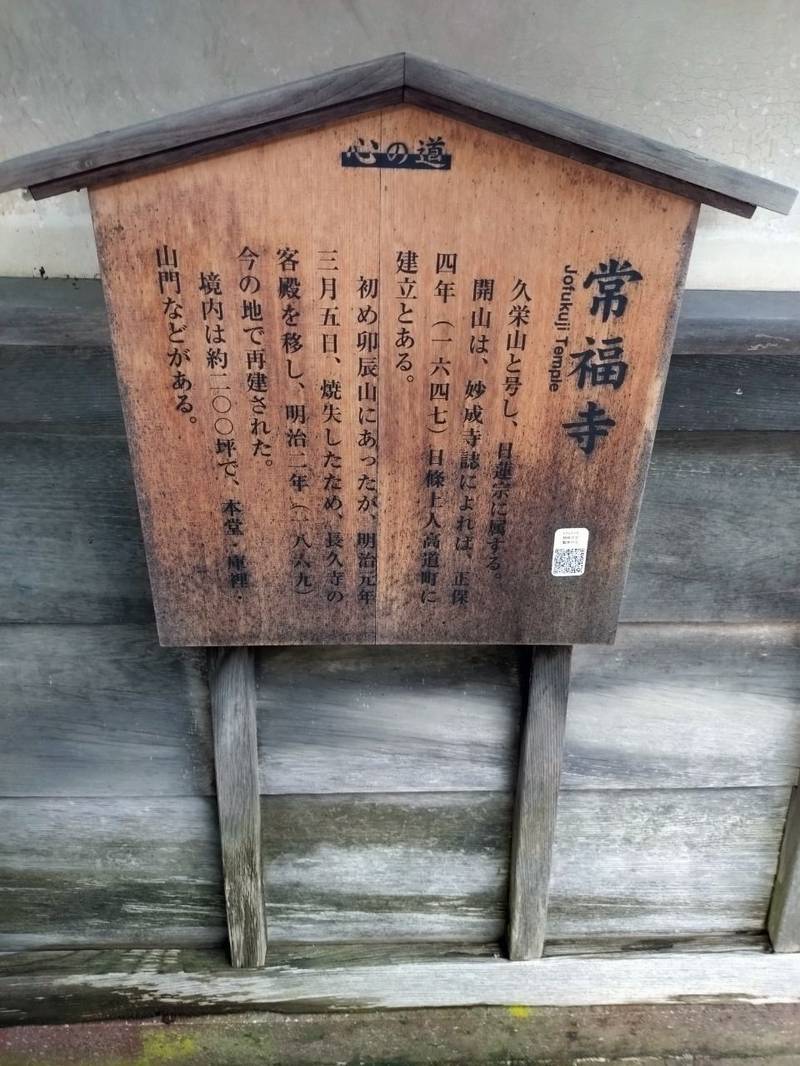 心の道
常福寺
Jofukuji Temple
久栄山と号し、日蓮宗に属する。
開山は、妙成寺誌によれば、正保
四年（一六四七）日條上人高道町に
建立とある。
初め卯辰山にあったが、明治元年
三月五日、焼失したため、長久寺の
客殿を移し、明治二年（一八六九）
今の地で再建された。
境内は約二〇〇坪で、本堂・庫裡・
山門などがある。